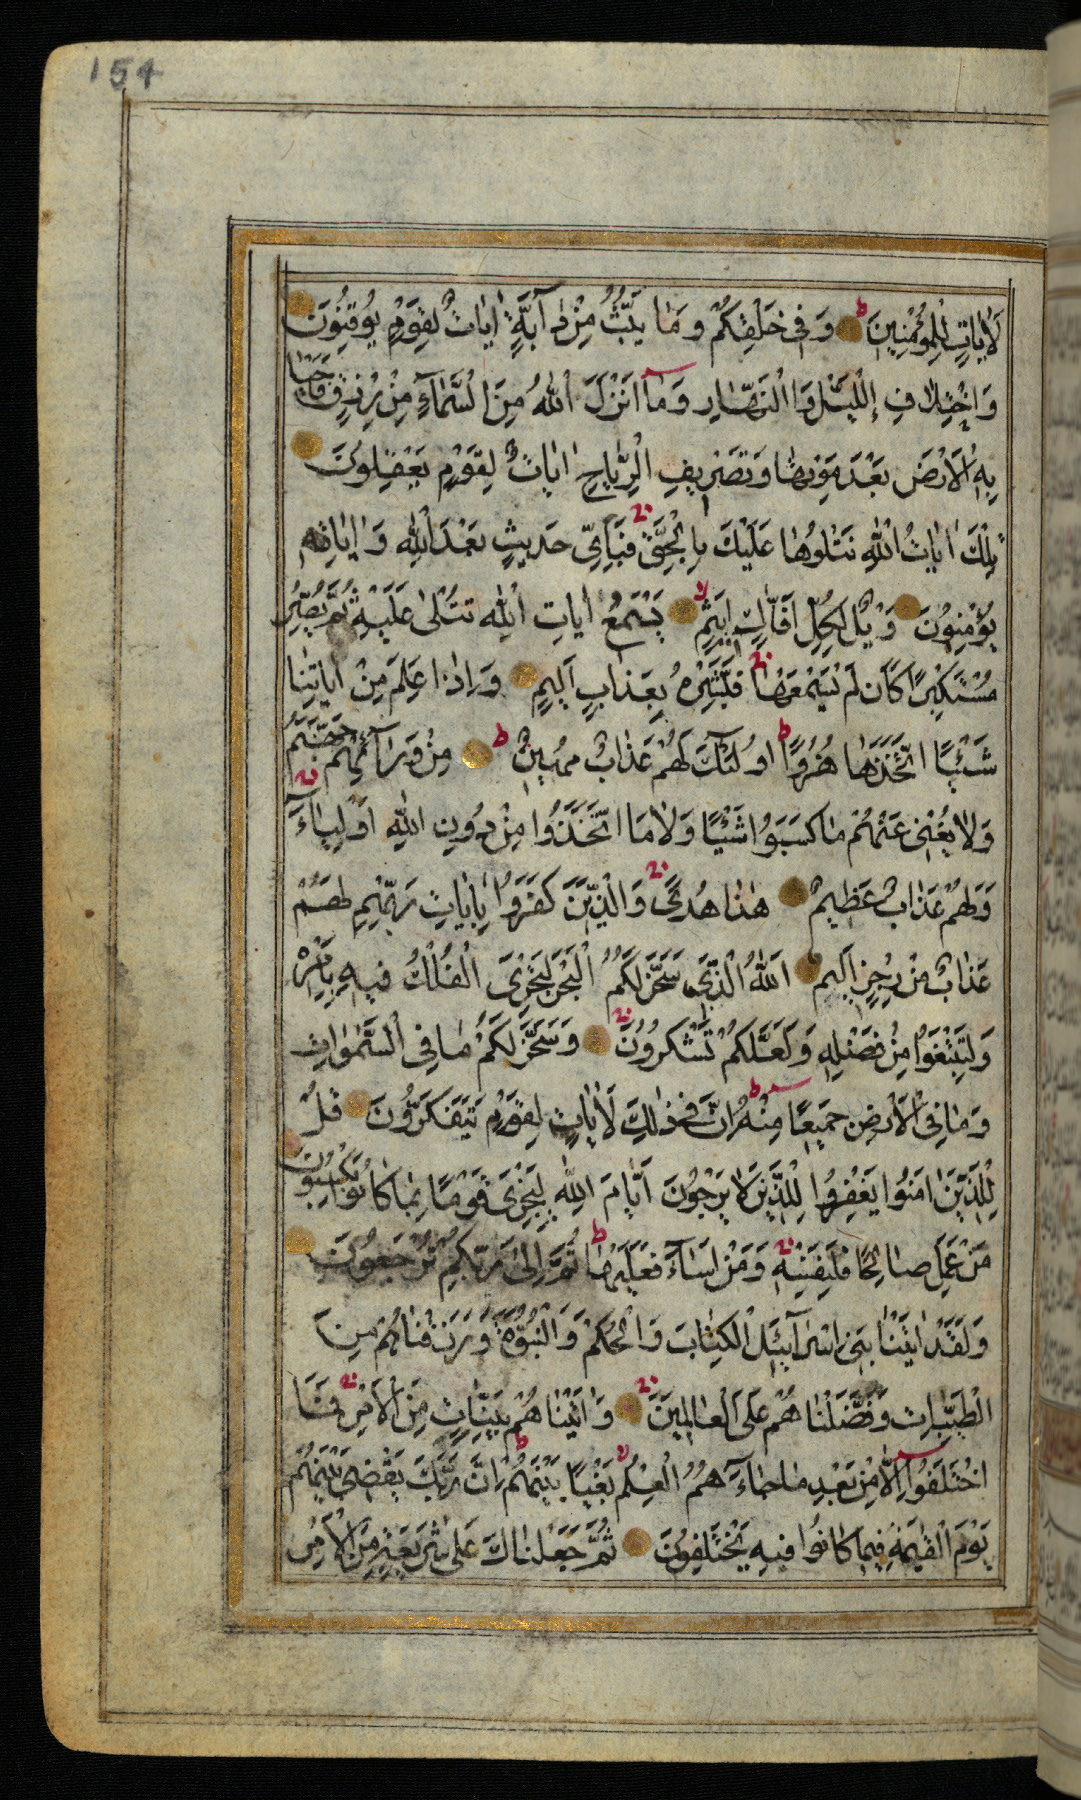 154
لَاٰيَاتٍ لِلْمُؤْمِنِينَ ط وَفِي خَلْقِكُمْ وَمَا يَبُثُّ مِنْ دَآبَّةٍ اٰيَاتٌ لِقَوْمٍ يُوقِنُونَ
وَاخْتِلَافِ اللَّيْلِ وَالنَّهَارِ وَمَآ اَنْزَلَ اللّٰهُ مِنَ السَّمَآءِ مِنْ رِزْقٍ فَاَحْيَا
بِهِ الْاَرْضَ بَعْدَ مَوْتِهَا وَتَصْرِيفِ الرِّيَاحِ اٰيَاتٌ لِقَوْمٍ يَعْقِلُونَ
تِلْكَ اٰيَاتُ اللّٰهِ نَتْلُوهَا عَلَيْكَ بِالْحَقِّ فَبِاَيِّ حَدِيثٍ بَعْدَ اللّٰهِ وَاٰيَاتِهِ
يُؤْمِنُونَ وَيْلٌ لِكُلِّ اَفَّاكٍ اَثِيمٍ لا يَسْمَعُ اٰيَاتِ اللّٰهِ تُتْلٰى عَلَيْهِ ثُمَّ يُصِرُّ
مُسْتَكْبِرًا كَاَنْ لَمْ يَسْمَعْهَا فَبَشِّرْهُ بِعَذَابٍ اَلِيمٍ وَاِذَا عَلِمَ مِنْ اٰيَاتِنَا
شَيْئًا اتَّخَذَهَا هُزُوًا ط اُولٰئِكَ لَهُمْ عَذَابٌ مُهِينٌ ط مِنْ وَرَآئِهِمْ جَهَنَّمُ
وَلَا يُغْنِي عَنْهُمْ مَا كَسَبُوا شَيْئًا وَلَا مَا اتَّخَذُوا مِنْ دُونِ اللّٰهِ اَوْلِيَآءَ
وَلَهُمْ عَذَابٌ عَظِيمٌ هٰذَا هُدًى وَالَّذِينَ كَفَرُوا بِاٰيَاتِ رَبِّهِمْ لَهُمْ
عَذَابٌ مِنْ رِجْزٍ اَلِيمٌ اَللّٰهُ الَّذِي سَخَّرَ لَكُمُ الْبَحْرَ لِتَجْرِيَ الْفُلْكُ فِيهِ بِاَمْرِهِ
وَلِتَبْتَغُوا مِنْ فَضْلِهِ وَلَعَلَّكُمْ تَشْكُرُونَ وَسَخَّرَ لَكُمْ مَا فِي السَّمٰوَاتِ
وَمَا فِي الْاَرْضِ جَمِيعًا مِنْهُ ط اِنَّ فِي ذٰلِكَ لَاٰيَاتٍ لِقَوْمٍ يَتَفَكَّرُونَ قُلْ
لِلَّذِينَ اٰمَنُوا يَغْفِرُوا لِلَّذِينَ لَا يَرْجُونَ اَيَّامَ اللّٰهِ لِيَجْزِيَ قَوْمًا بِمَا كَانُوا يَكْسِبُونَ
مَنْ عَمِلَ صَالِحًا فَلِنَفْسِهِ وَمَنْ اَسَآءَ فَعَلَيْهَا ط ثُمَّ اِلٰى رَبِّكُمْ تُرْجَعُونَ
وَلَقَدْ اٰتَيْنَا بَنِي اِسْرَآئِيلَ الْكِتَابَ وَالْحُكْمَ وَالنُّبُوَّةَ وَرَزَقْنَاهُمْ مِنَ
الطَّيِّبَاتِ وَفَضَّلْنَاهُمْ عَلَى الْعَالَمِينَ وَاٰتَيْنَاهُمْ بَيِّنَاتٍ مِنَ الْاَمْرِ فَمَا
اخْتَلَفُوا اِلَّا مِنْ بَعْدِ مَا جَآءَهُمُ الْعِلْمُ لا بَغْيًا بَيْنَهُمْ ط اِنَّ رَبَّكَ يَقْضِي بَيْنَهُمْ
يَوْمَ الْقِيٰمَةِ فِيمَا كَانُوا فِيهِ يَخْتَلِفُونَ ثُمَّ جَعَلْنَاكَ عَلٰى شَرِيعَةٍ مِنَ الْاَمْرِ